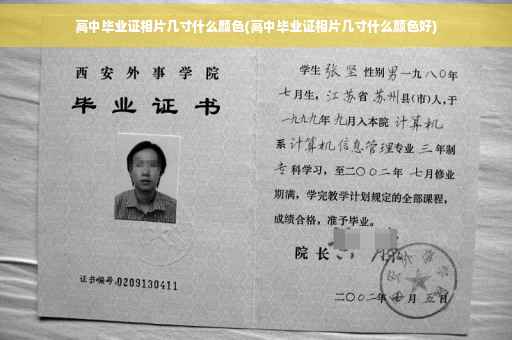 高中毕业证相片几寸什么颜色(高中毕业证相片几寸什么颜色好)
西安外事学院
毕业证书
证书编号:0209130411
学生 张坚 性别 男 一九八〇年
七月生，江苏省 苏州县(市)人，于
一九九九年 九月入本院 计算机
系 计算机信息管理专业 三 年制
专科学习，至二〇〇二年 七月修业
期满，学完教学计划规定的全部课程，
成绩合格，准予毕业。
院长
二〇〇二年 月 五日